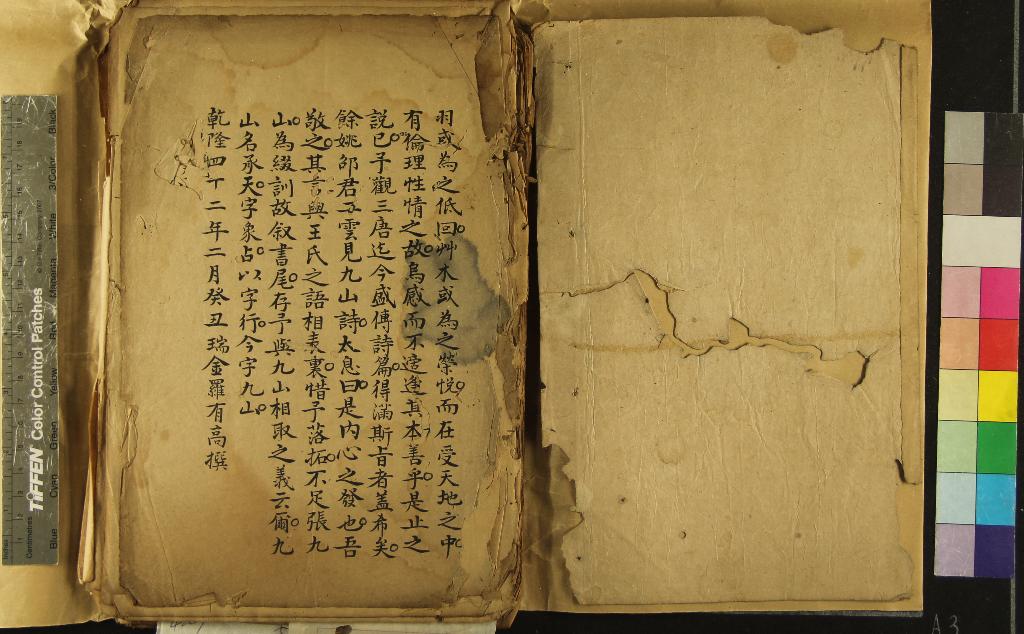 羽或為之低回艸木或為之榮悅而在受天地之中
有倫理性情之故烏感而不遼逢其本善乎是止之
說已予觀三唐迄今盛傳詩篇得滿斯旨者蓋希矣
餘姚邵君五雲見九山詩太息曰是內心之發也吾
敬之其言與王氏之語相表裏惜予落拓不足張九
山為綴訓故叙書尾存予與九山相取之義云爾九
山名承天字象占以字行今字九山
乾隆四十二年二月癸丑瑞金羅有高撰
TIFFEN Color Control Patches
Blue Cyan Green Yellow Red Magenta White 3/Color Black
Inches
Centimetres
A 3